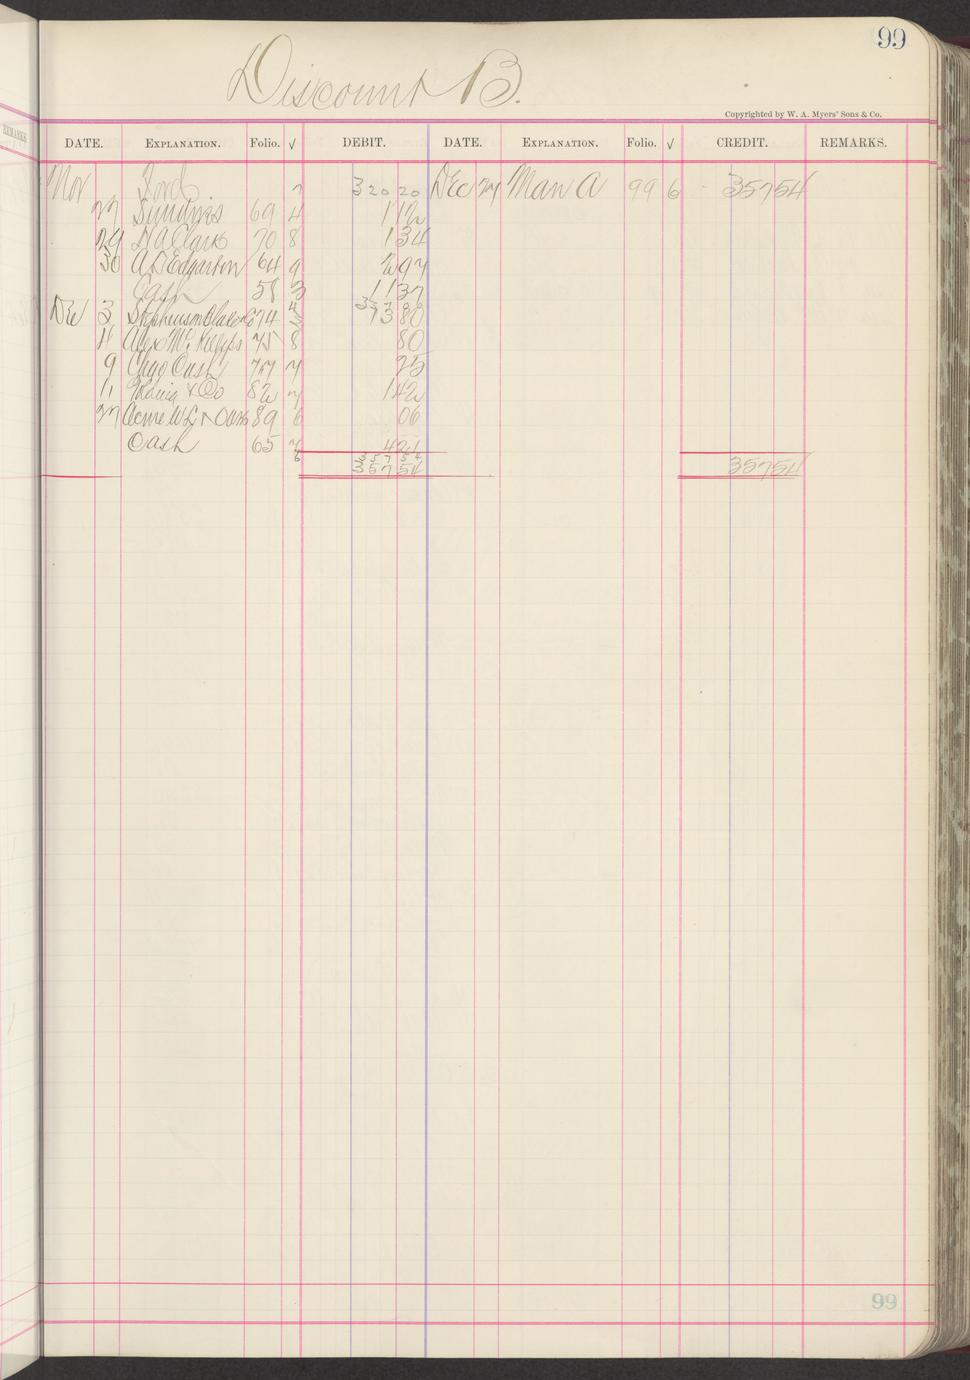 99
Discount B.
Copyrighted by W. A. Myers' Sons & Co.
REMARKS
DATE. EXPLANATION. Folio. √ DEBIT. DATE. EXPLANATION. Folio. √ CREDIT. REMARKS.
Nov Ford 7 320 20 Dec 27 Man A 99 6 357 54
27 Sundries 69 4 1 12
29 70 8 1 34
30 A D Edgarton 64 9 2 97
Cash 58 3 11 37
Dec 3 74 13 80
4 75 8 80
9 Chgo Cash 77 7 25
11 & Co 82 7 1 42
27 Acme 89 6 06
Cash 65 7 4 21
6 357 54
357 54 357 54
99